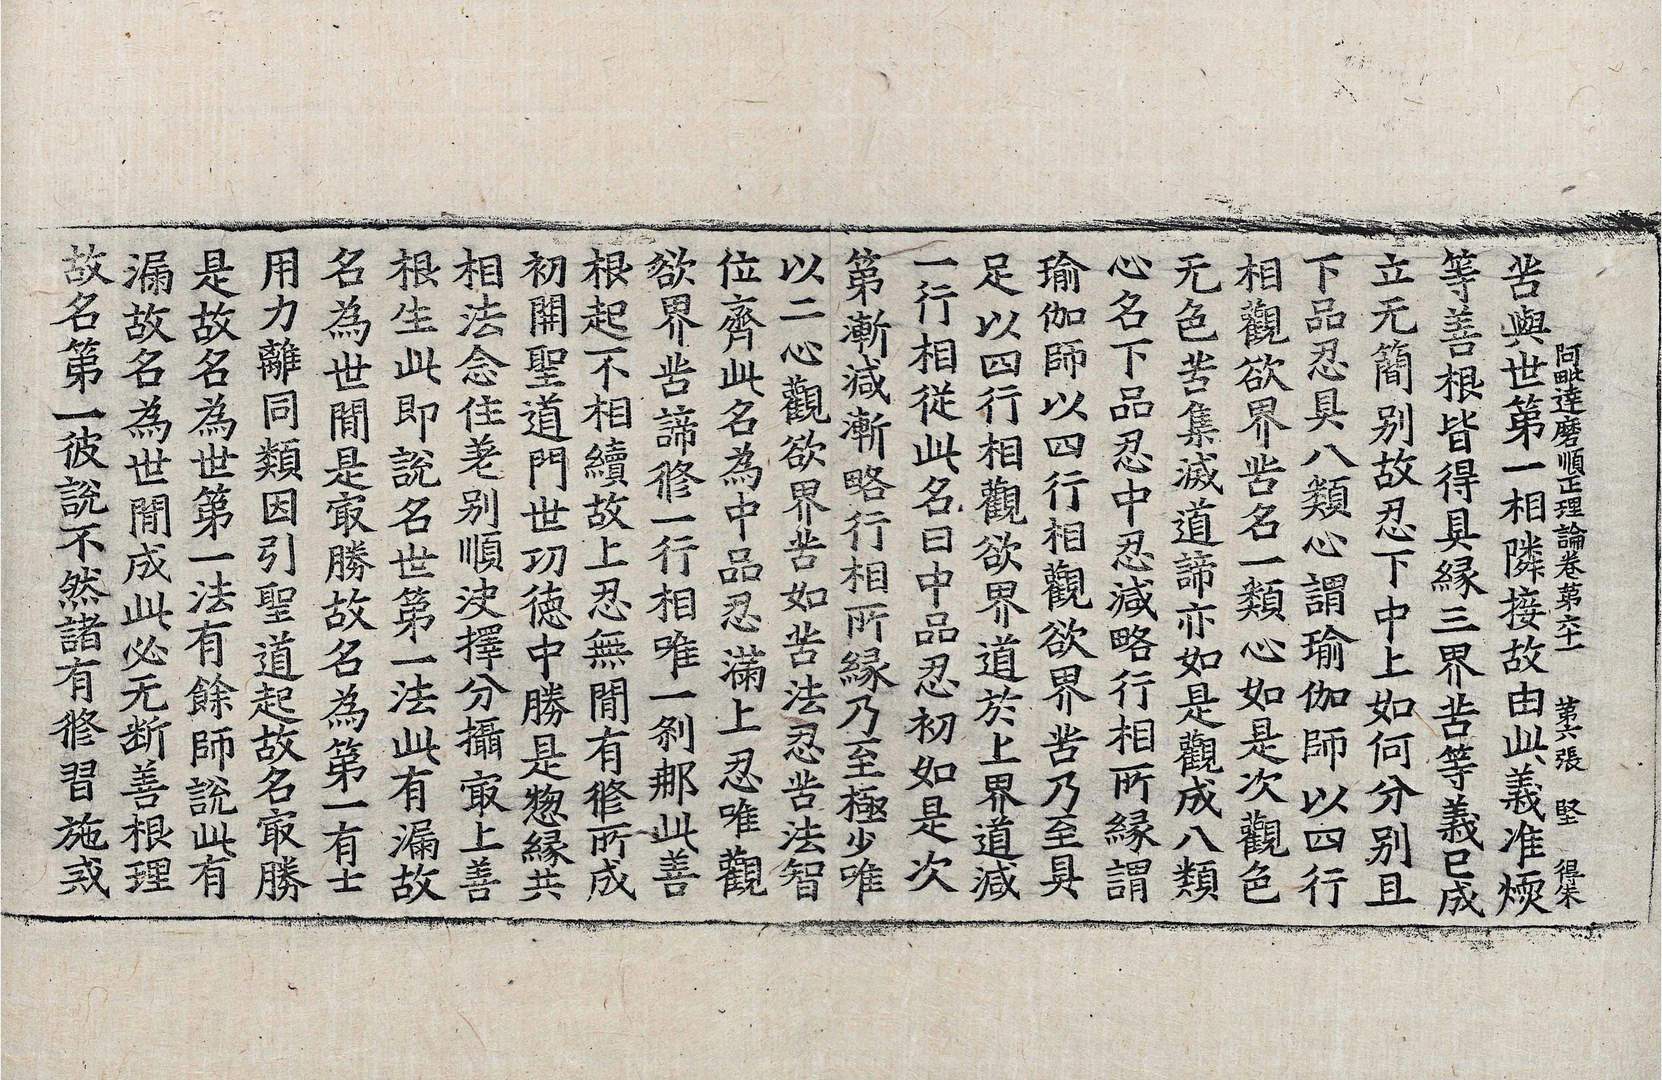 阿毗達磨順正理論卷第六十一　第六張　堅　得朱
苦與世第一相隣接故由此義准煗
等善根皆得具縁三界苦等義已成
立无簡别故忍下中上如何分别且
下品忍具八類心謂瑜伽師以四行
相觀欲界苦名一類心如是次觀色
无色苦集滅道諦亦如是觀成八類
心名下品忍中忍減略行相所縁謂
瑜伽師以四行相觀欲界苦乃至具
足以四行相觀欲界道於上界道減
一行相從此名曰中品忍初如是次
第漸減漸略行相所縁乃至極少唯
以二心觀欲界苦如苦法忍苦法智
位齊此名為中品忍滿上忍唯觀
欲界苦諦修一行相唯一刹那此善
根起不相續故上忍無間有修所成
初開聖道門世功德中勝是惣縁共
相法念住差别順决擇分攝㝡上善
根生此即說名世第一法此有漏故
名為世間是㝡勝故名為第一有士
用力離同類因引聖道起故名㝡勝
是故名為世第一法有餘師說此有
漏故名為世間成此必无断善根理
故名第一彼說不然諸有修習施戒